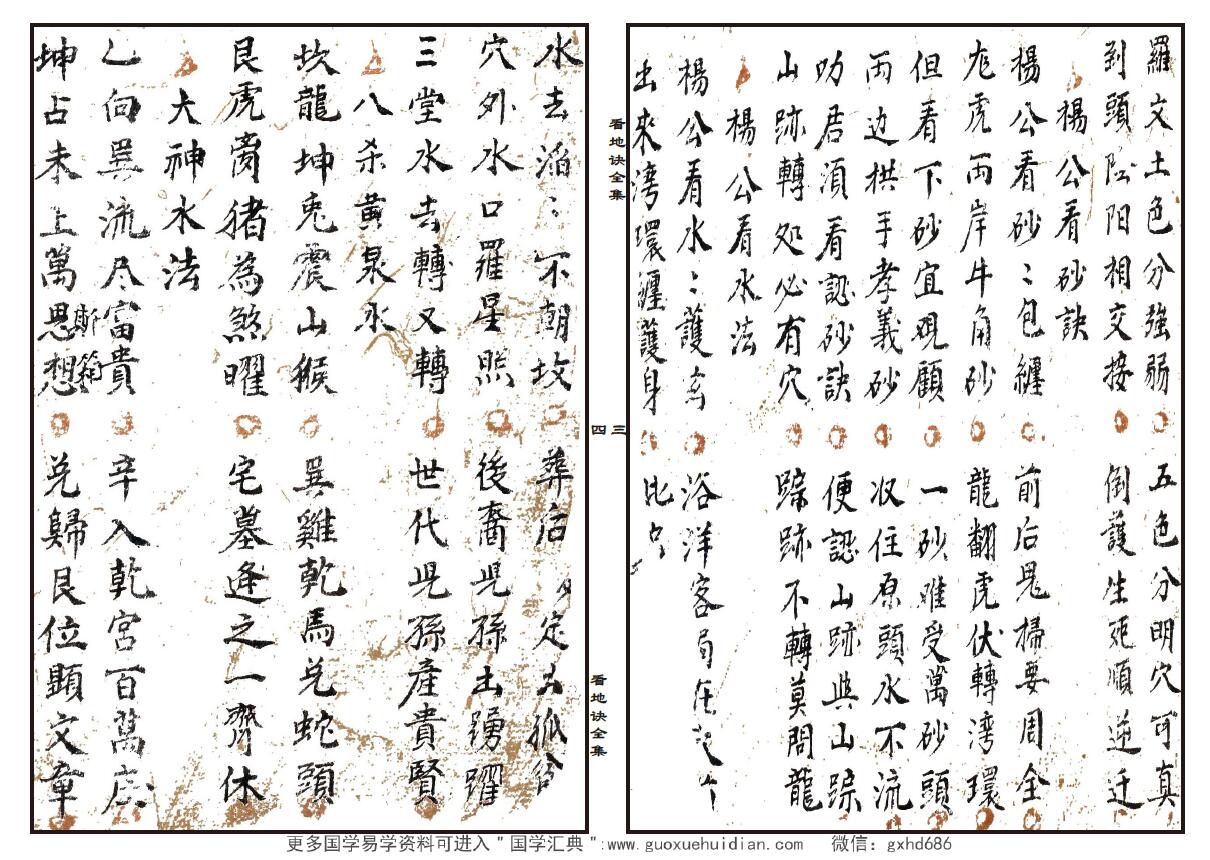 羅文土色分強弱 五色分明穴可真
到頭陰阳相交接 倒護生死順逆迁
楊公看砂訣
楊公看砂〻包纏 前后鬼掃要周全
龙虎両岸牛角砂 龍翻虎伏轉湾環
但看下砂宜观顧 一砂难受萬砂頭
両边拱手孝義砂 收住原頭水不流
叻君須看認砂訣 便認山跡與山踪
山跡轉処必有穴 踪跡不轉莫問龍
楊公看水法
楊公看水〻護 浴洋客局在
出來湾環纏護身 比
看地诀全集
三
四
看地诀全集
水去滔〻不朝坟 葬后定出孤
穴外水口羅星照 後裔児孫出踴躍
三堂水去轉又轉 世代児孫産貴賢
八杀黄泉水
坎龍坤兎震山猴 巽雞乾馬兌蛇頭
艮虎离猪為煞曜 宅墓逢之一齊休
大神水法
乙向巽流尽富貴 辛入乾宮百萬庄
斯箱
坤占未上萬思想 兌歸艮位顯文章
更多国学易学资料可进入＂国学汇典＂:www.guoxuehuidian.com 微信：gxhd686